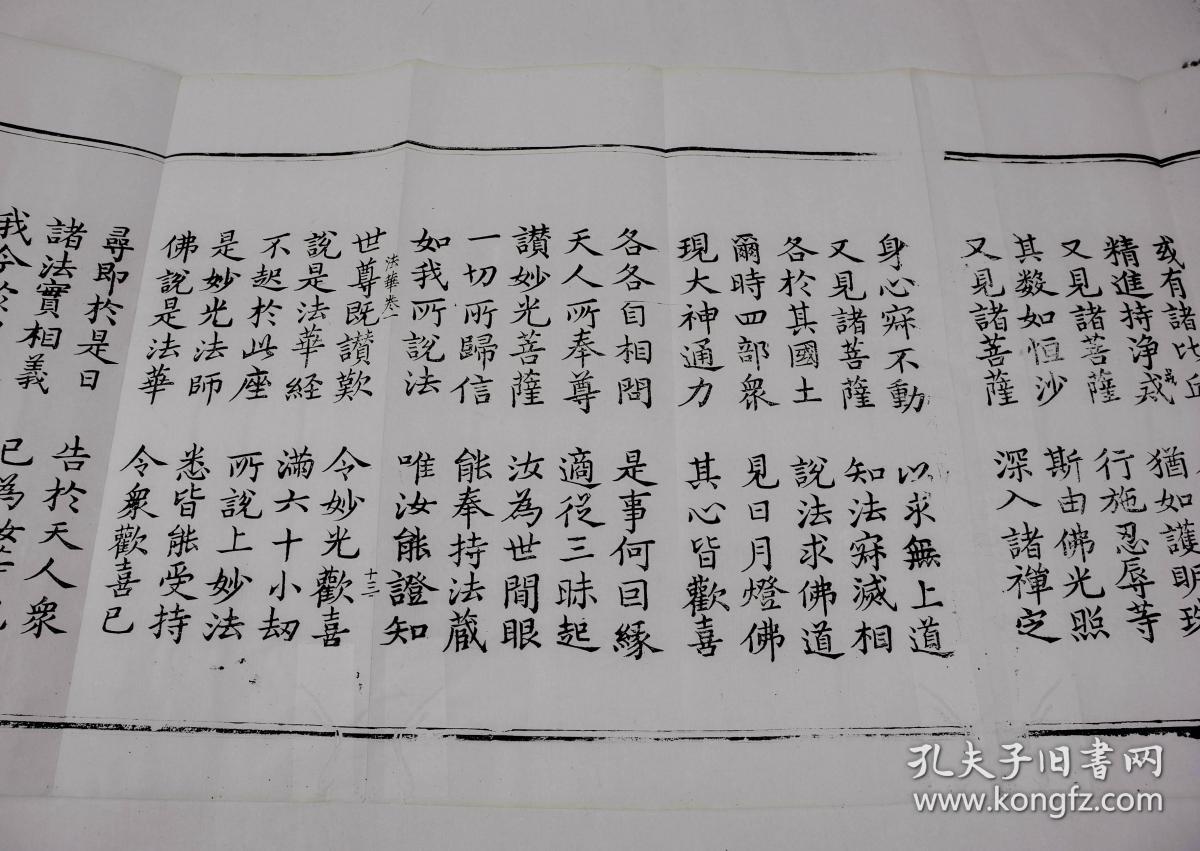 或有諸比丘
精進持淨戒 猶如護明珠
又見諸菩薩 行施忍辱等
其數如恒沙 斯由佛光照
又見諸菩薩 深入諸禪定
身心寂不動 以求無上道
又見諸菩薩 知法寂滅相
各於其國土 說法求佛道
爾時四部眾 見日月燈佛
現大神通力 其心皆歡喜
各各自相問 是事何囙緣
天人所奉尊 適從三昧起
讃妙光菩薩 汝為世間眼
一切所歸信 能奉持法藏
如我所說法 唯汝能證知
法華卷一 十三
世尊既讃歎 令妙光歡喜
說是法華経 滿六十小刼
不起於此座 所說上妙法
是妙光法師 悉皆能受持
佛說是法華 令衆歡喜已
尋即於是日 告於天人衆
諸法實相義 已為汝
我今於
孔夫子旧书网
www.kongfz.com